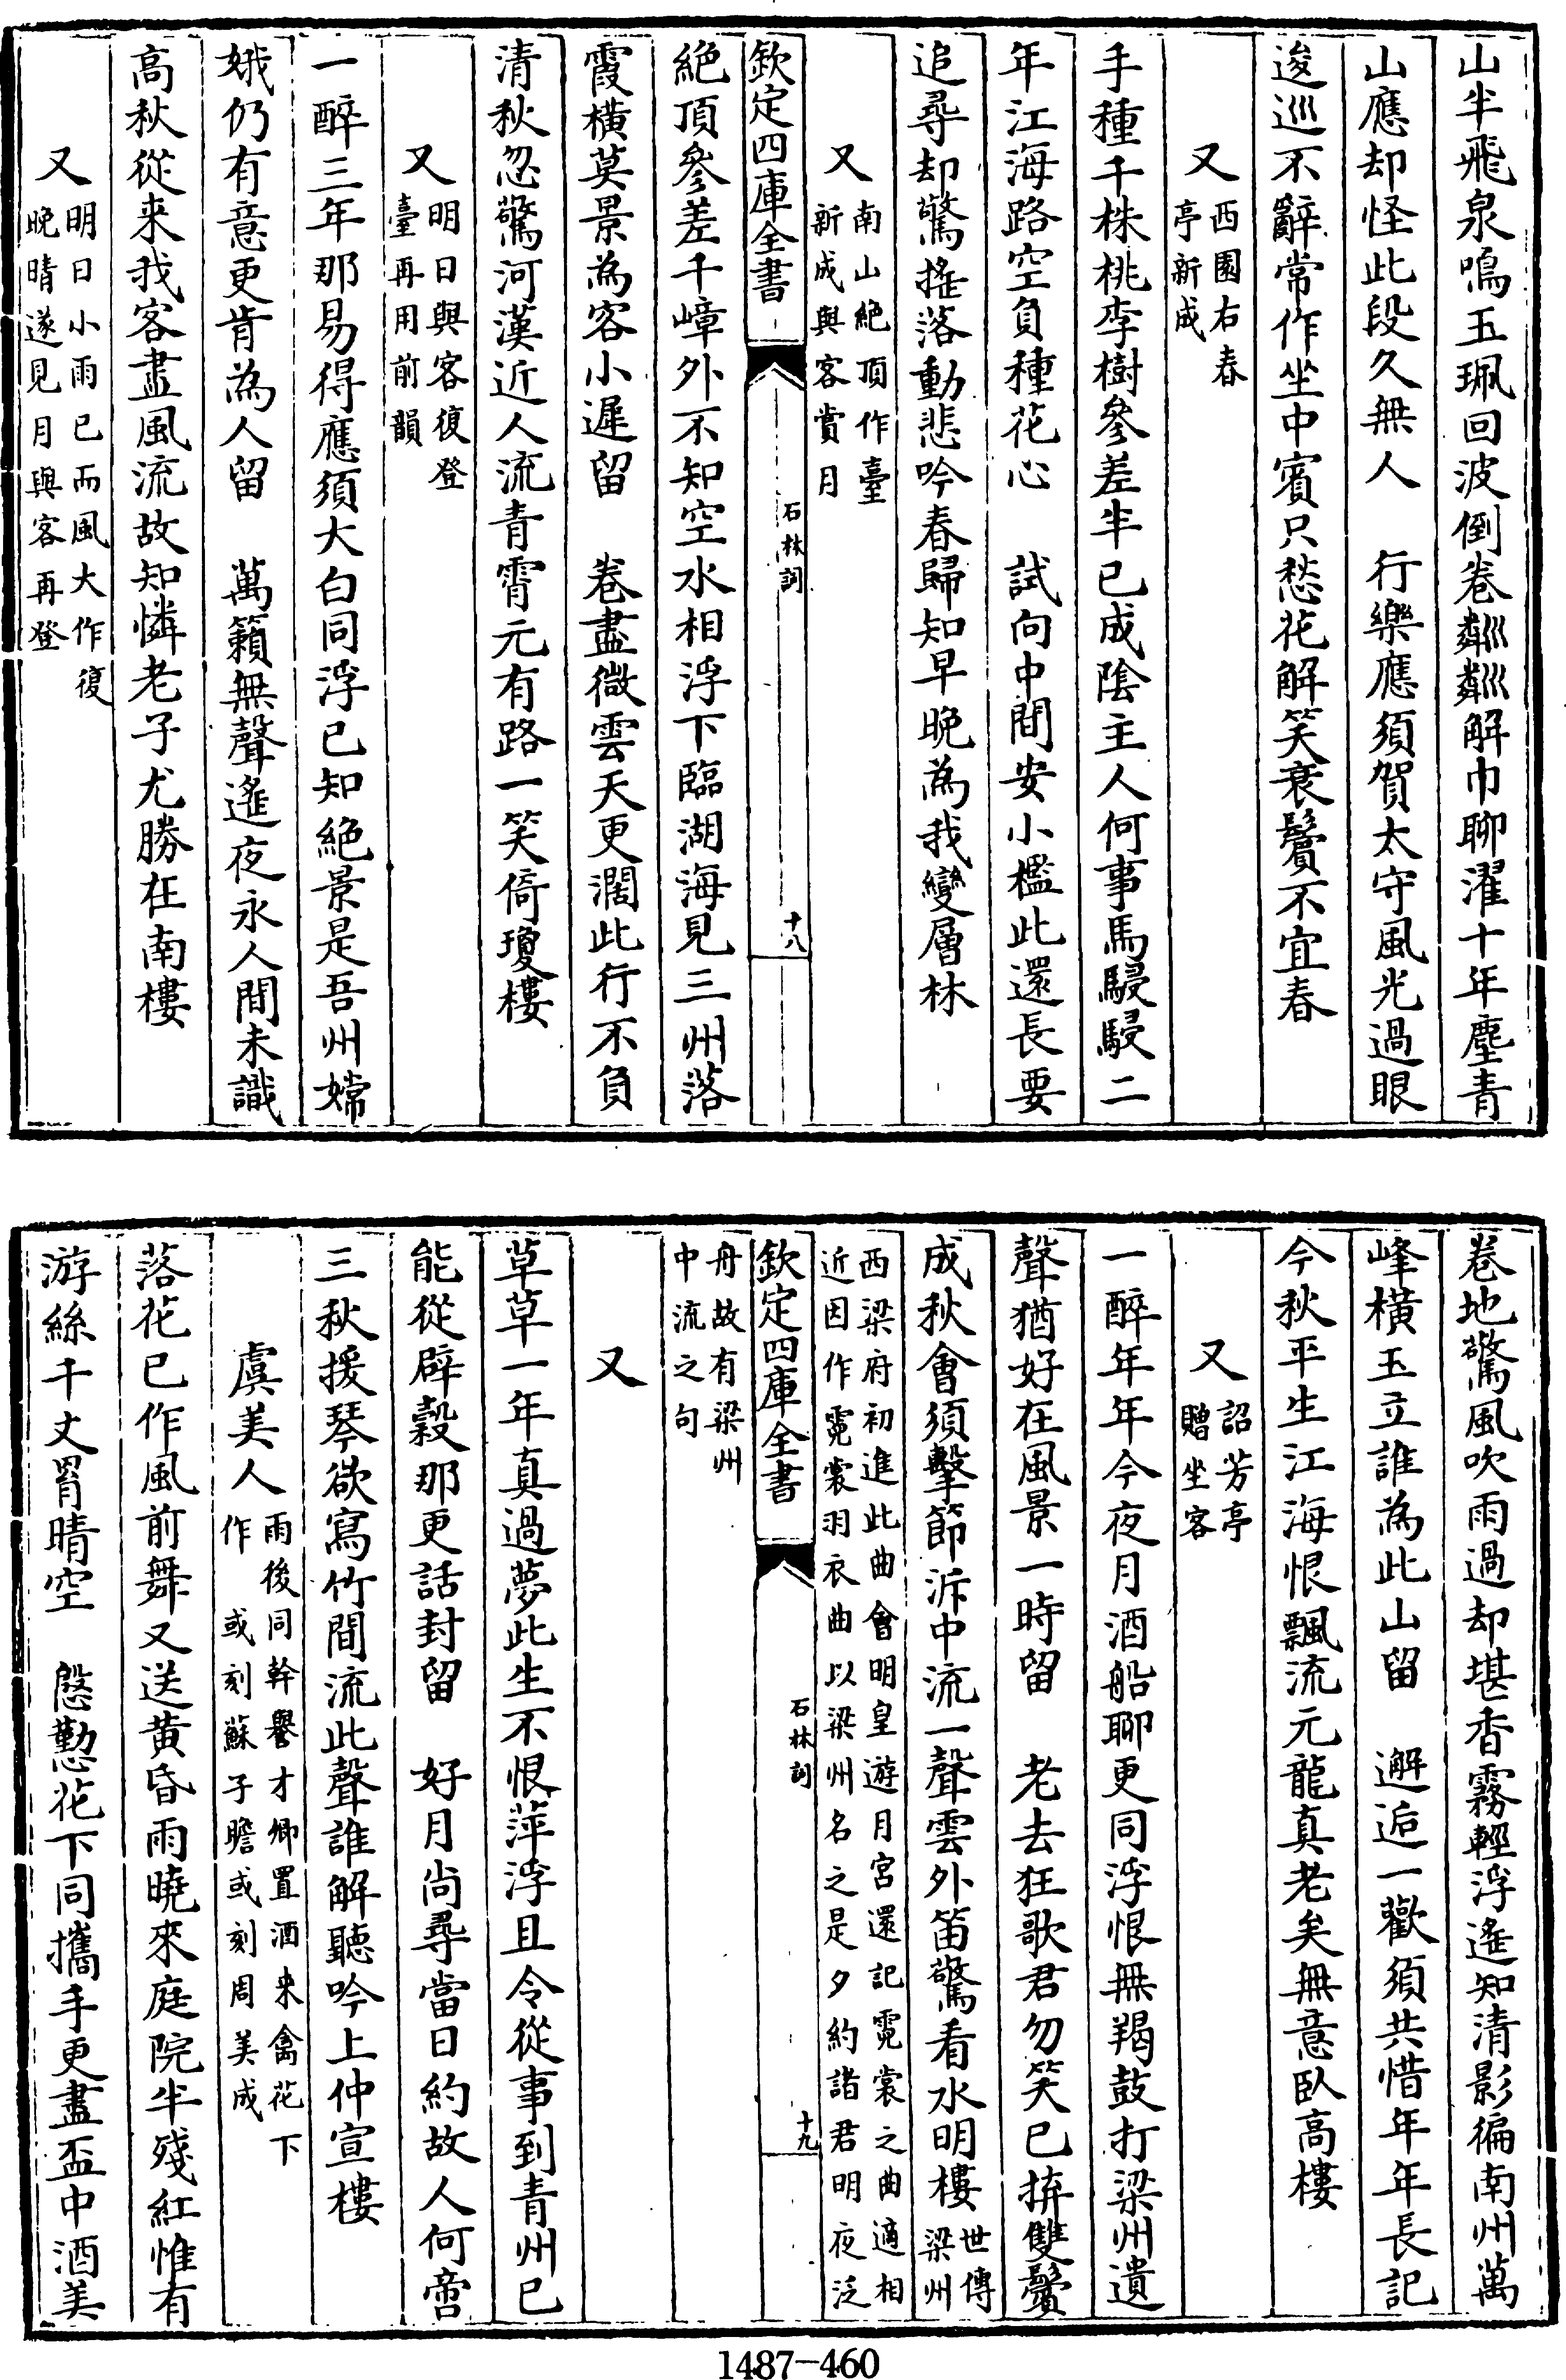 山半飛泉鳴玉珮回波倒卷粼粼解巾聊濯十年塵青
山應却怪此段久無人　行樂應須賀太守風光過眼
逡巡不辭常作坐中賓只愁花解笑衰鬢不宜春
又西園右春亭新成
手種千株桃李樹參差半已成陰主人何事馬駸駸二
年江海路空負種花心　試向中間安小檻此還長要
追尋却驚搖落動悲吟春歸知早晚為我變層林
又南山絶頂作臺新成與客賞月
欽定四庫全書　石林詞　十八
絶頂參差千嶂外不知空水相浮下臨湖海見三州落
霞橫莫景為客小遲留　卷盡微雲天更濶此行不負
清秋忽驚河漢近人流青霄元有路一笑倚瓊樓
又明日與客復登臺再用前韻
一醉三年那易得應須大白同浮已知絶景是吾州嫦
娥仍有意更肯為人留　萬籟無聲遙夜永人間未識
高秋從来我客盡風流故知憐老子尤勝在南樓
又明日小雨已而風大作復晚晴遂見月與客再登
卷地驚風吹雨過却堪香霧輕浮遙知清影徧南州萬
峰橫玉立誰為此山留　邂逅一歡須共惜年年長記
今秋平生江海恨飄流元龍真老矣無意臥高樓
又詔芳亭贈坐客
一醉年年今夜月酒船聊更同浮恨無羯鼓打梁州遺
聲猶好在風景一時留　老去狂歌君勿笑已拚雙鬢
成秋會須擊節泝中流一聲雲外笛驚看水明樓世傳梁州
西梁府初進此曲會明皇遊月宮還記霓裳之曲適相
近因作霓裳羽衣曲以梁州名之是夕約諸君明夜泛
欽定四庫全書　石林詞　十九
舟故有梁州
中流之句
又
草草一年真過夢此生不恨萍浮且令從事到青州已
能從辟穀那更話封留　好月尚尋當日約故人何啻
三秋援琴欲寫竹間流此聲誰解聽吟上仲宣樓
虞美人雨後同幹譽才卿置酒来禽花下作　或刻蘇子瞻或刻周美成
落花已作風前舞又送黃昏雨曉來庭院半殘紅惟有
游絲千丈罥晴空　慇懃花下同攜手更盡盃中酒美
1487-460